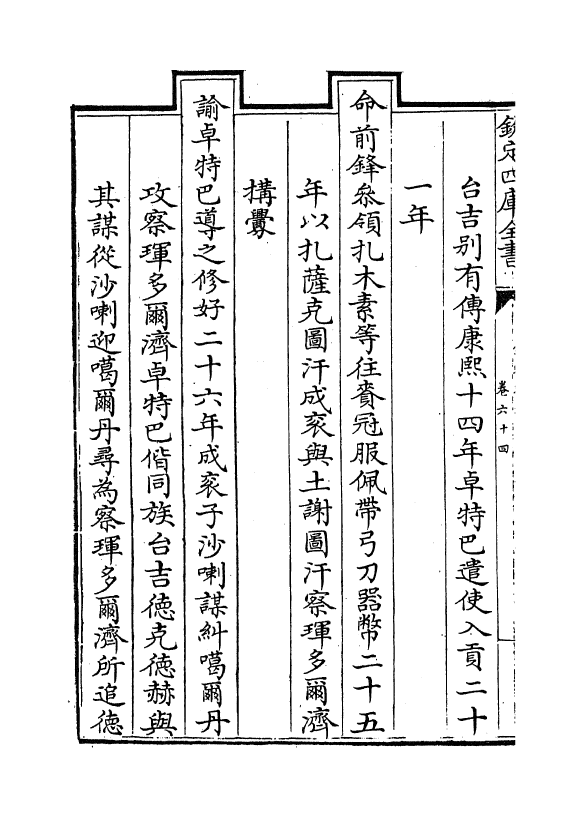 欽定四庫全書
卷六十四
台吉别有傳康熙十四年卓特巴遣使入貢二十
一年
命前鋒叅領扎木素等往賚冠服佩帶弓刀器幣二十五
年以扎薩克圖汗成衮與土謝圖汗察琿多爾濟
搆釁
諭卓特巴導之修好二十六年成衮子沙喇謀糾噶爾丹
攻察琿多爾濟卓特巴偕同族台吉徳克徳赫與
其謀從沙喇迎噶爾丹尋為察琿多爾濟所追徳